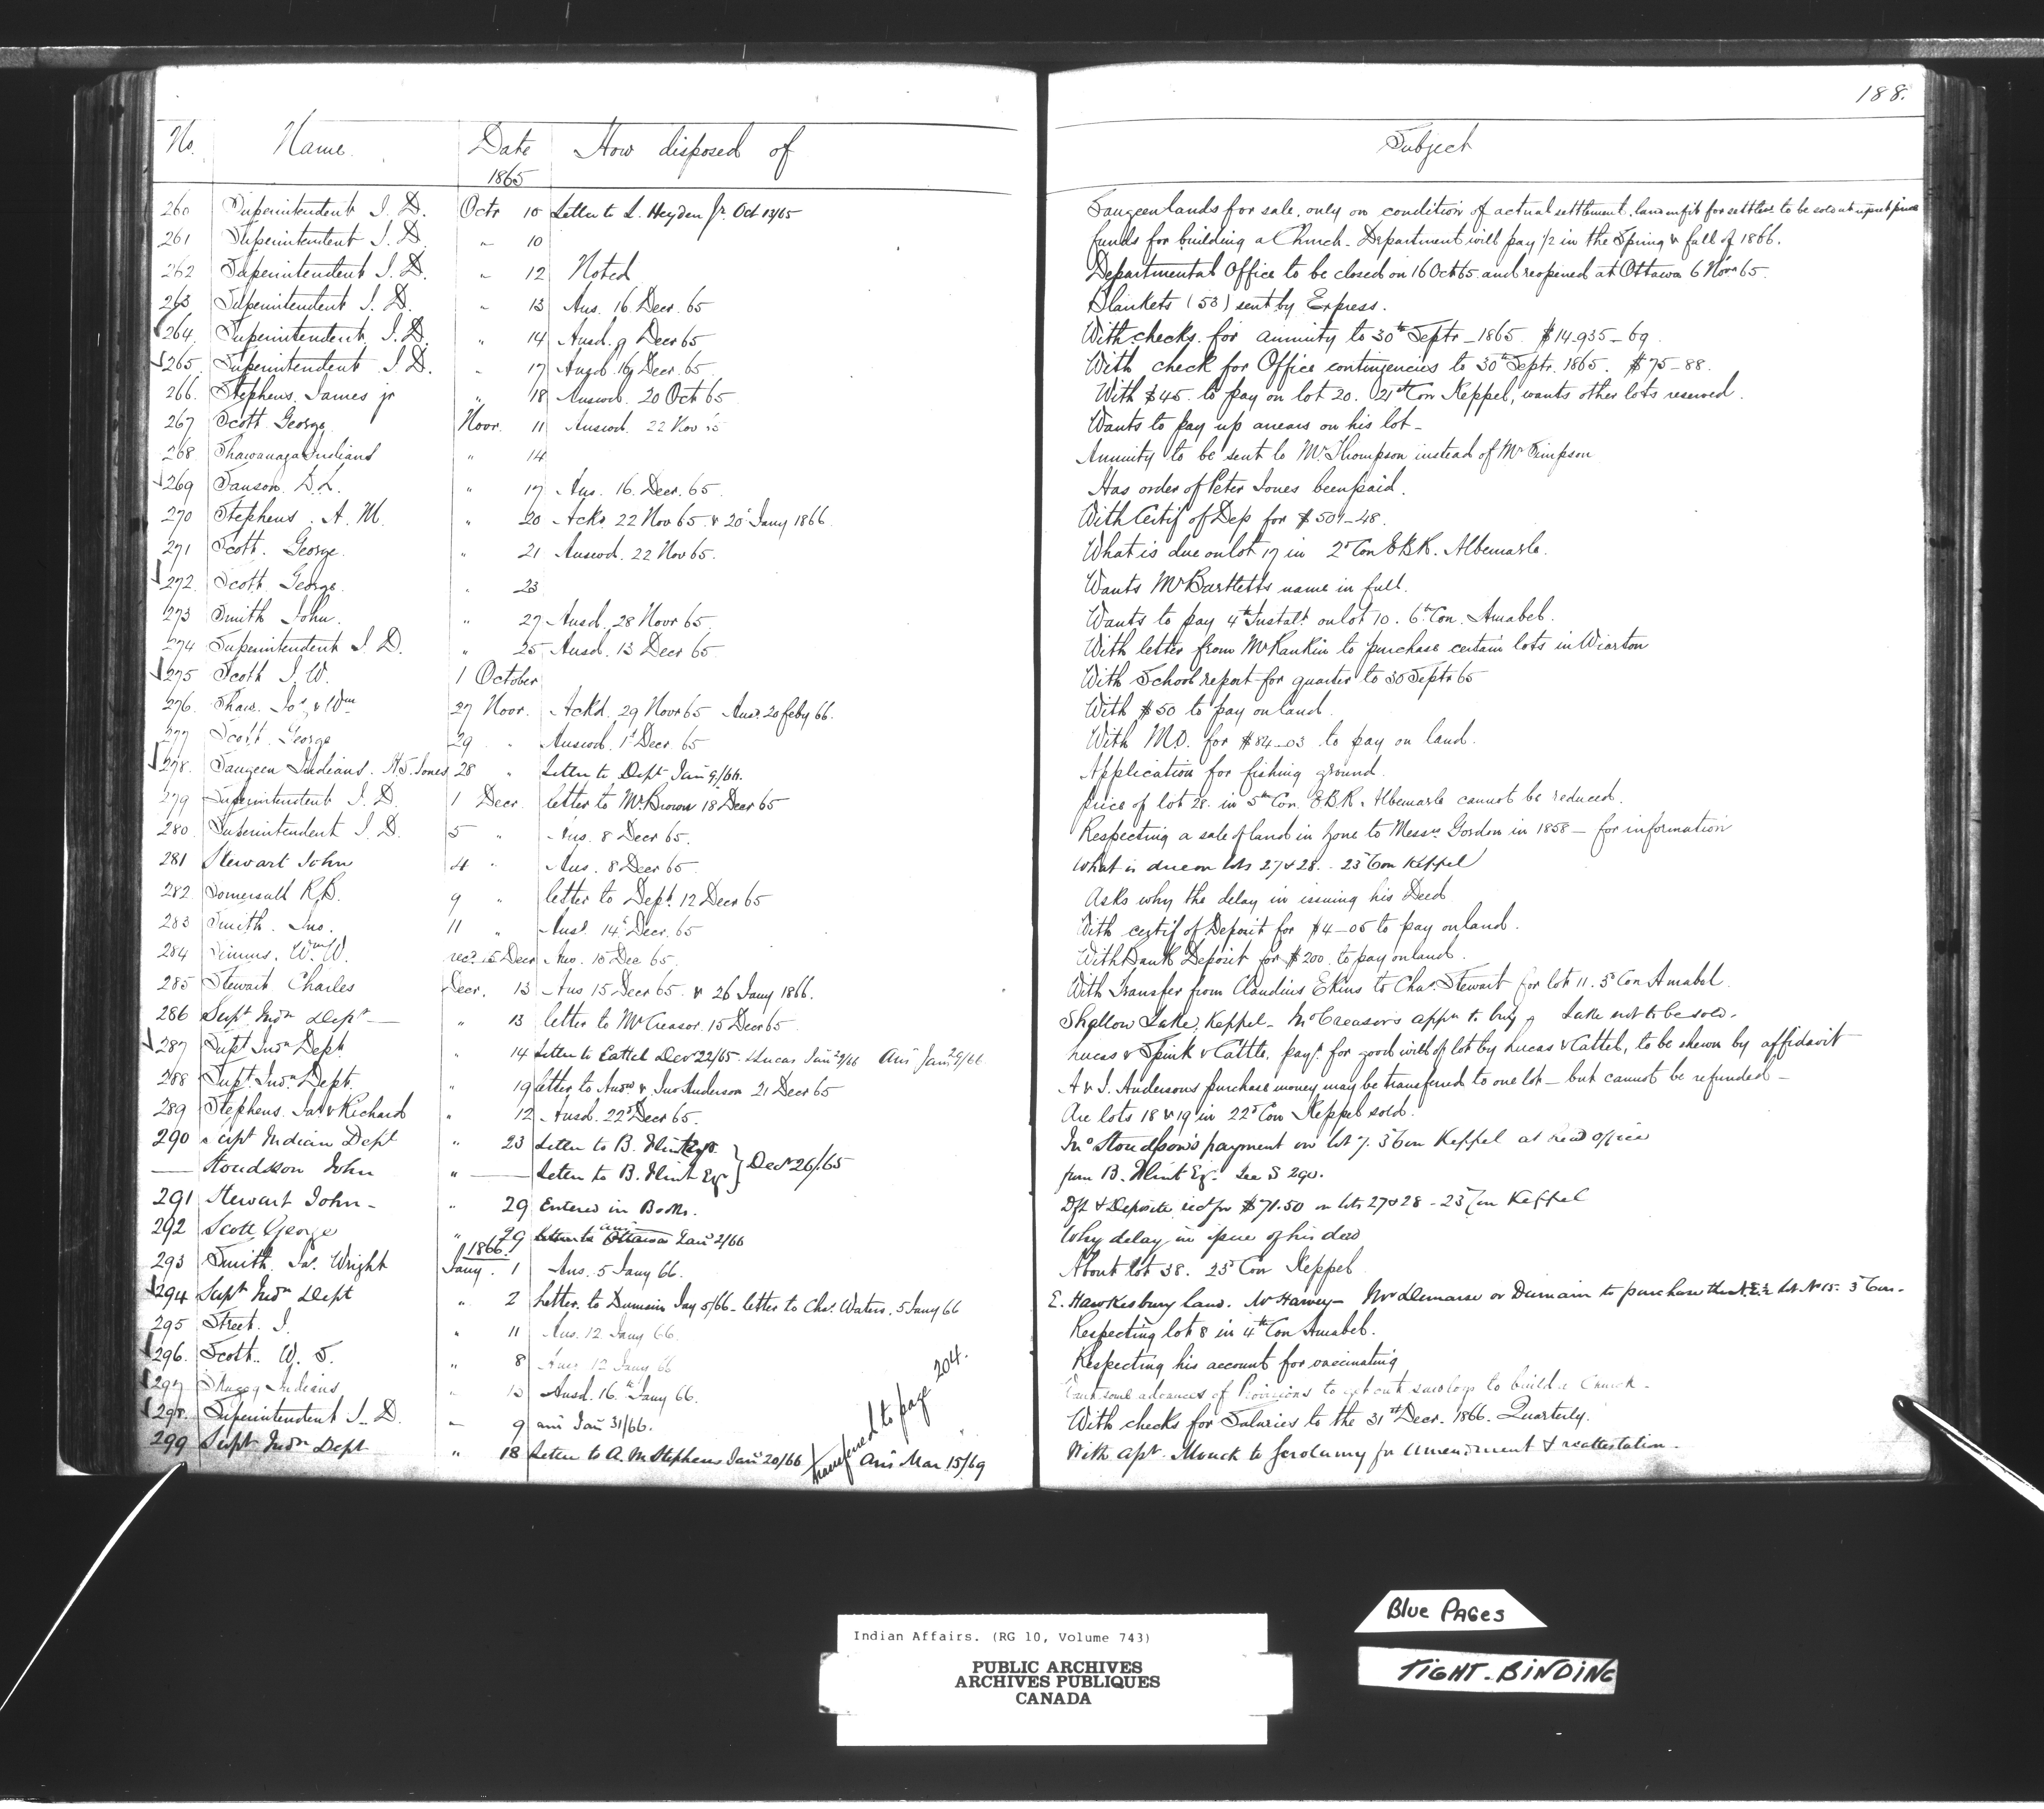 188.
No. Name. Date How disposed of Subject
1865
260 Superintendent I. D. Octr 10 Letter to L. Heyden Jr. Oct 13/65 Saugeen lands for sale, only on condition of actual settlement, land unfit for settlers to be sold at upset price
261 Superintendent I. D. " 10 funds for building a Church - Department will pay 1/2 in the Spring & fall of 1866.
262 Superintendent I. D. " 12 Noted Departmental Office to be closed on 16 Oct 65 and reopened at Ottawa 6 Novr 65.
263 Superintendent I. D. " 13 Ans. 16 Decr. 65 Blankets (53) sent by Express.
264 Superintendent I. D. " 14 Ansd. 9 Decr 65 With checks for annuity to 30th Septr - 1865 $14.935-69
265 Superintendent I D. " 17 Ansd 16 Decr. 65. With check for Office contingencies to 30th Septr. 1865. $75-88.
266. Stephens. James jr " 18 Answd. 20 Oct 65 With $45. to pay on lot 20. 21st Con Keppel, wants other lots reserved.
267 Scott George Novr. 11 Answd. 22 Nov 65 Wants to pay up arrears on his lot -
268 Shawanaga Indians " 14 Annuity to be sent to Mr. Thompson instead of Mr Simpson
269 Sanson D. L. " 17 Ans. 16. Decr. 65. Has order of Peter Jones been paid.
270 Stephens. A. M. " 20 Ackd. 22 Nov 65 & 20th Jany 1866 With Certif of Dep for $507-48.
271 Scott. George. " 21 Answd. 22 Nov 65. What is due on lot 17 in 2d Con E B R. Albemarle.
272. Scott. George. " 23 Wants Mr Bartletts name in full.
273 Smith John. " 27 Ansd. 28 Novr 65. Wants to pay 4th Instalt. on lot 10. 6th Con. Amabel.
274 Superintendent I. D. " 25 Ansd. 13 Decr 65. With letter from Mr Rankin to purchase certain lots in Wiarton
275 Scott J. W. 1 October With School report for quarter to 30 Septr 65
276. Shaw. Jos. & Wm 27 Novr. Ackd. 29 Novr 65 Ansr. 20 Feby 66. With $50 to pay on land.
277 Scott. George 29 " Answd. 1st Decr. 65 With M.O. for $84-03 to pay on land.
278. Saugeen Indians. H. S. Jones 28 " Letter to Dept Jany 9/66. Application for fishing ground.
279 Superintendent I. D. 1 Decr. letter to Mr Brown 18 Decr 65 price of lot 28. in 5th Con. E B R. Albemarle cannot be reduced.
280. Superintendent I. D. 5 " Ans. 8 Decr 65. Respecting a sale of land in Zone to Messrs Gordon in 1858 - for information
281 Stewart John 4 " Ans. 8 Decr 65 What is due on lots 27 & 28.. 23d Con Keppel
282 Somersall R. B. 9 " letter to Dept. 12 Decr 65 Asks why the delay in issuing his Deed
283 Smith. Jno. 11 " Ansd. 14th Decr. 65 With certif of Deposit for $4-05 to pay on land.
284 Simms. Wm W. recd. 15 Decr Ans. 15 Dec 65. With Bank Deposit for $200. to pay on land.
285 Stewart Charles Decr. 13 Ans 15 Decr 65. & 26 Jany 1866. With Transfer from Claudius Ekins to Chas. Stewart for lot 11. 5th Con Amabel.
286 Supt Indn Dept - " 13 letter to McCreasor. 15 Decr 65. Shallow Lake, Keppel - McCreasors appn to buy Lake not to be sold.
287 Supt Indn Dept. " 14 Letter to Cattel Decr 22/65. & Lucas Jany 2/66 Ansd Jany 29/66 Lucas & Spink & Cattle. payt. for good will of lot by Lucas & Cattel, to be shewn by affidavit
288 Supt. Indn. Dept. " 19 letter to Andw & Jno Anderson 21 Decr 65 A & J. Andersons purchase money may be transferred to one lot - but cannot be refunded -
289 Stephens. Jas. & Richard " 12 Ansd. 22d Decr 65. Are lots 18 & 19 in 22d Con Keppel sold.
290 Supt Indian Dept " 23 Letter to B. Flint Esqr. Jno Stoudsson's payment on lot 7. 3d Con Keppel at head office
Stoudsson John " Letter to B. Flint Esqr } Decr 26/65 from B. Flint Esqr. See S 290.
291 Stewart John - " 29 Entered in Books. Dft & Deposite recd for $71.50 on lots 27 & 28 - 23d Con Keppel
292 Scott George " 29 Letter to Ottawa ansd Jany 2/66 Why delay in issue of his deed
1866.
293 Smith. Jas. Wright Jany. 1 Ans. 5 Jany 66. About lot 38. 25th Con Keppel
294 Supt Indn Dept " 2 Letter. to Dumain Jany 5/66 - letter to Chas. Waters. 5 Jany 66 E. Hawkesbury land. Mr Harvey - Mr Demarse or Dumain to purchase the N.E. 1/2 lot No 15. 3d Con.
295 Street. J. " 11 Ans. 12 Jany 66. Respecting lot 8 in 4th Con Amabel.
296. Scott.. W. S. " 8 Ans. 12 Jany 66 Respecting his account for vaccinating
297 Skugog Indians " 13 Ansd. 16th Jany 66. Want some advances of Provisions to get out sawlogs to build a Church.
298. Superintendent I. D. " 9 ansd Jany 31/66. With checks for Salaries to the 31st Decr. 1866. Quarterly.
299 Supt Indn Dept " 18 Letter to A. M Stephens Jany 20/66 Ansd Mar 15/69 With apt. Monck to Jerolamy for Amendment & reattestation.
transferred to page 204.
Blue PAGes
TIGHT-BINDING
Indian Affairs. (RG 10, Volume 743)
PUBLIC ARCHIVES
ARCHIVES PUBLIQUES
CANADA